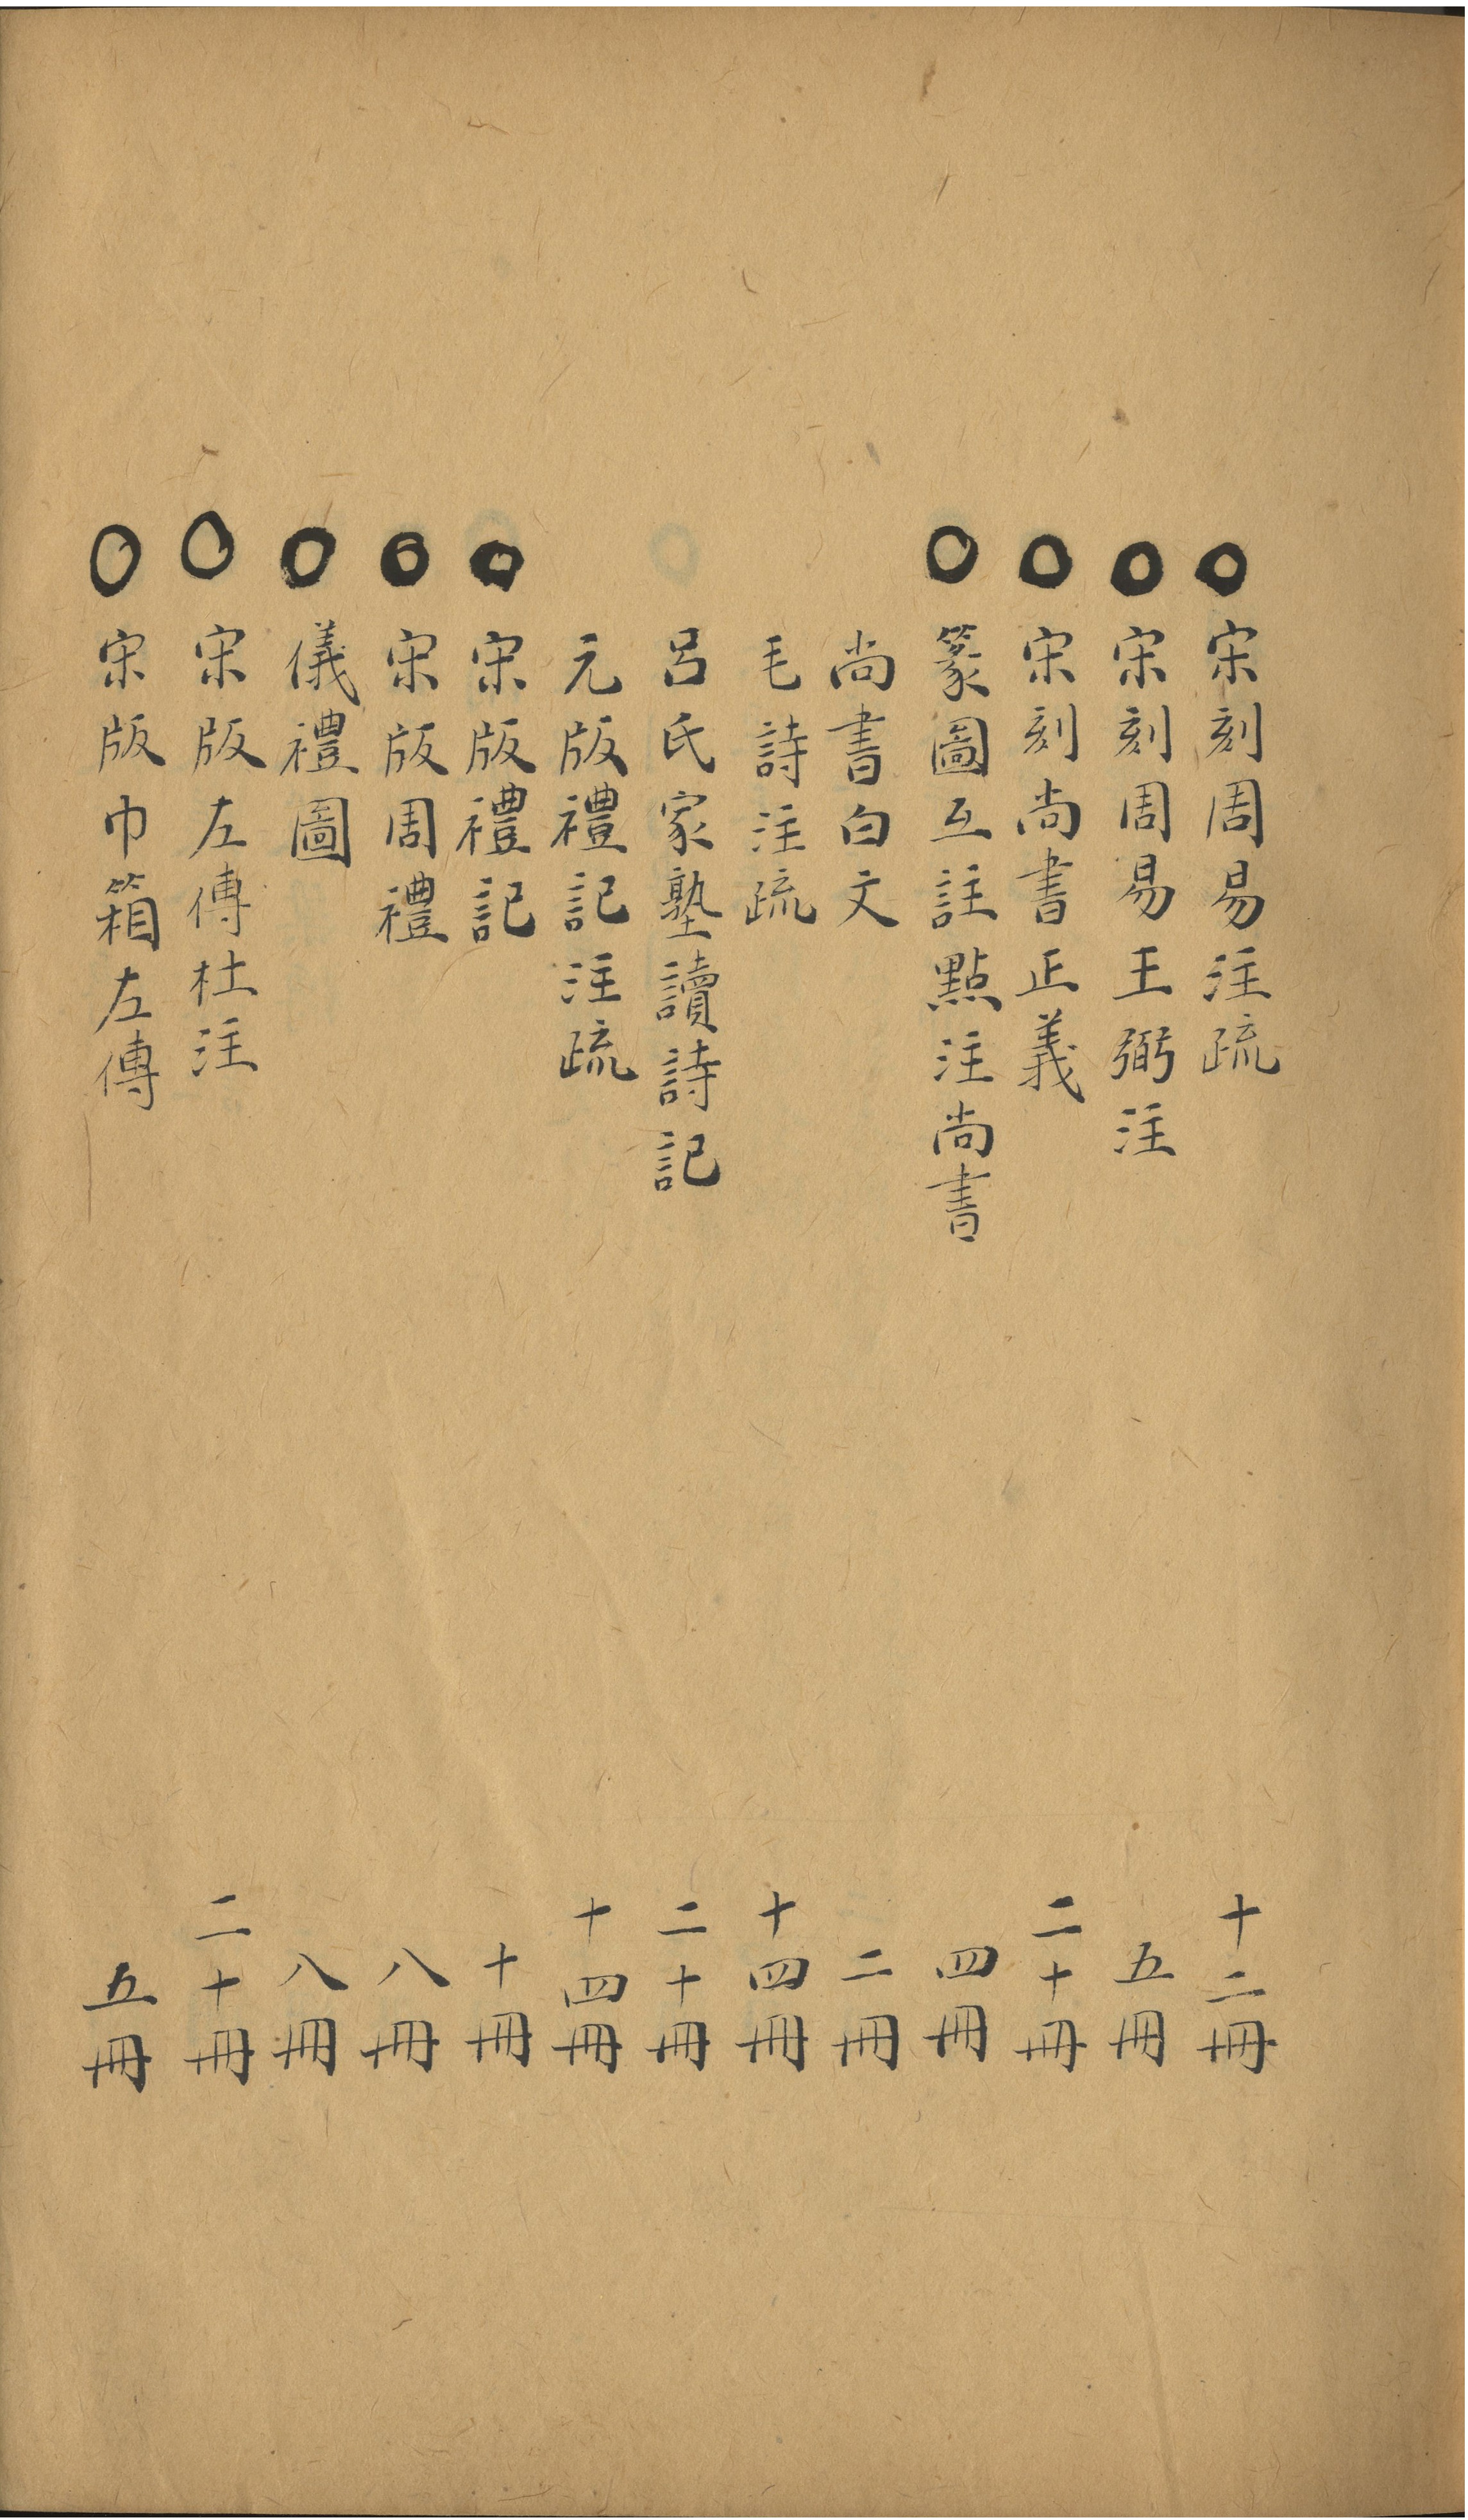 ○宋刻周易注疏 十二冊
○宋刻周易王弼注 五冊
○宋刻尚書正義 二十冊
○篆圖互註點注尚書 四冊
尚書白文 二冊
毛詩注疏 十四冊
呂氏家塾讀詩記 二十冊
元版禮記注疏 十四冊
○宋版禮記 十冊
○宋版周禮 八冊
○儀禮圖 八冊
○宋版左傳杜注 二十冊
○宋版巾箱左傳 五冊